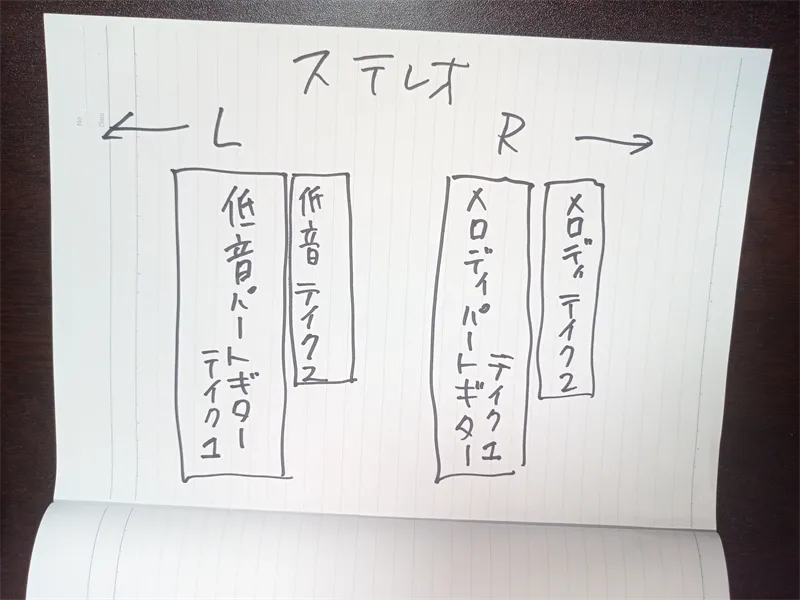 ステレオ
← L
R →
低音パートギター
テイク1
低音 テイク2
メロディパートギター
テイク1
メロディ テイク2
No
Date